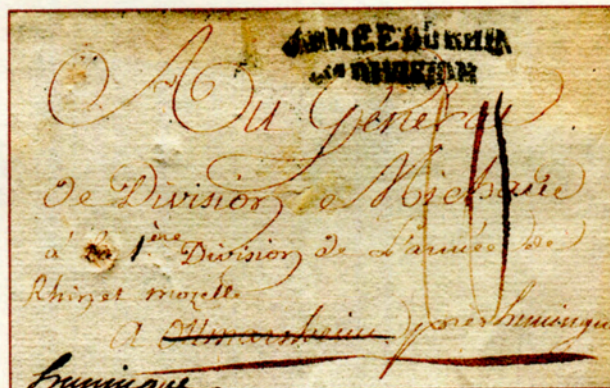 ARMÉE DU RHIN
DIVISION
Au Général
de Division Michaud
à la 1ère Division de L'armée de
Rhin et mozelle
a Ottmarsheim près huningue
huningue